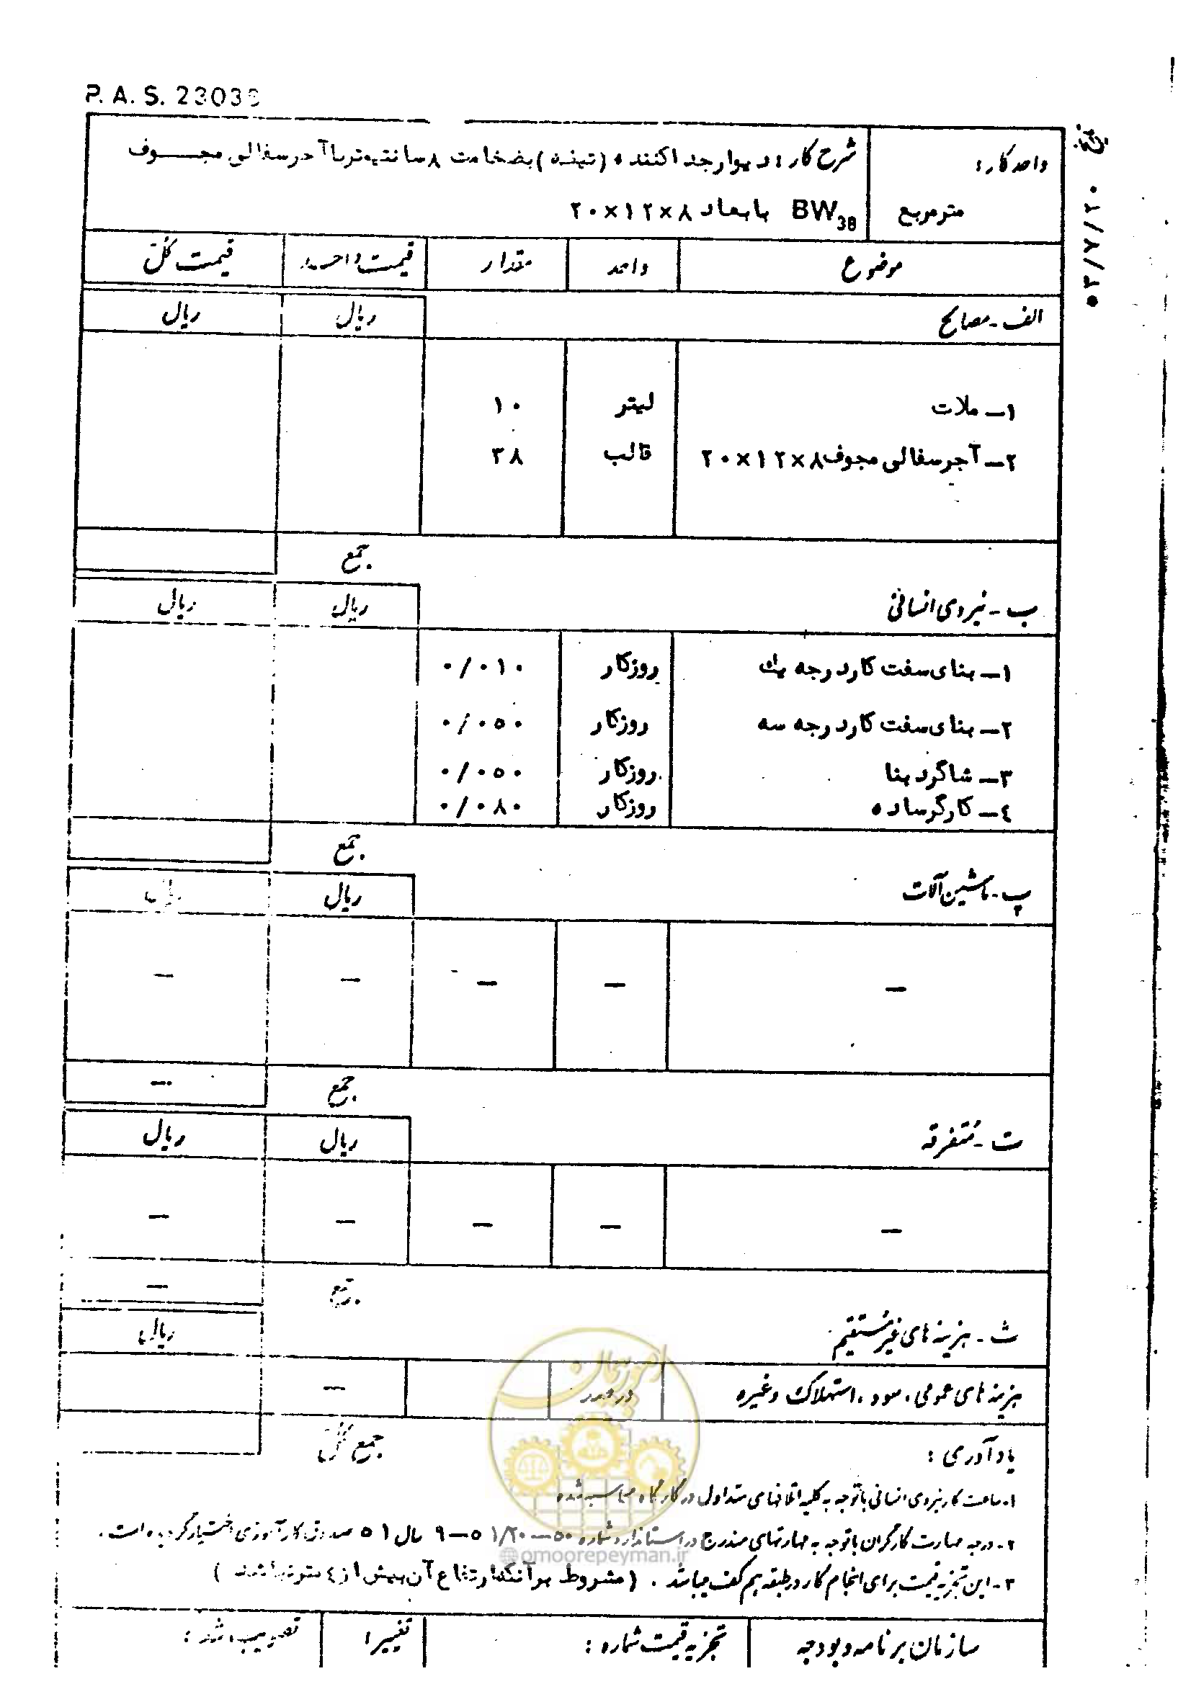 P. A. S. 23038
واحد کار :
شرح کار : دیوار جدا کننده (تیغه) بضخامت ۸ سانتیمتر با آجر سفالی مجوف
مترمربع
BW38 با بعاد ۸×۱۲×۲۰
۵۳/۷/۲۰
موضوع واحد مقدار قیمت واحد قیمت کل
الف - مصالح ریال ریال
۱ـ ملات لیتر ۱۰
۲ـ آجر سفالی مجوف ۸×۱۲×۲۰ قالب ۳۸
جمع
ب - نیروی انسانی ریال ریال
۱ـ بنای سفت کار درجه یک روزکار ۰/۰۱۰
۲ـ بنای سفت کار درجه سه روزکار ۰/۰۵۰
۳ـ شاگرد بنا روزکار ۰/۰۵۰
٤ـ کارگر ساده روزکار ۰/۰۸۰
جمع
پ - ماشین آلات ریال ریال
— — — — —
جمع —
ت - متفرقه ریال ریال
— — — — —
جمع —
ث - هزینه های غیر مستقیم ریال
هزینه های عمومی ، سود ، استهلاک وغیره درصد —
جمع کل
یادآوری :
۱- ساعت کار نیروی انسانی باتوجه به کلیه اتلافهای متداول در کارگاه محاسبه شده
۲- درجه مهارت کارگران باتوجه به مهارتهای مندرج در استاندارد شماره ۵۰—۱/۲۰ ۵—۹ سال ۵۱ صندوق کارآموزی اختیار گردیده است .
۳- این تجزیه قیمت برای انجام کار در طبقه هم کف میباشد . (مشروط بر آنکه ارتفاع آن بیش از ٤ متر نباشد )
سازمان برنامه و بودجه تجزیه قیمت شماره : تغییر ۱ تصویب شد :
امور پیمان
@omoorepeyman.ir